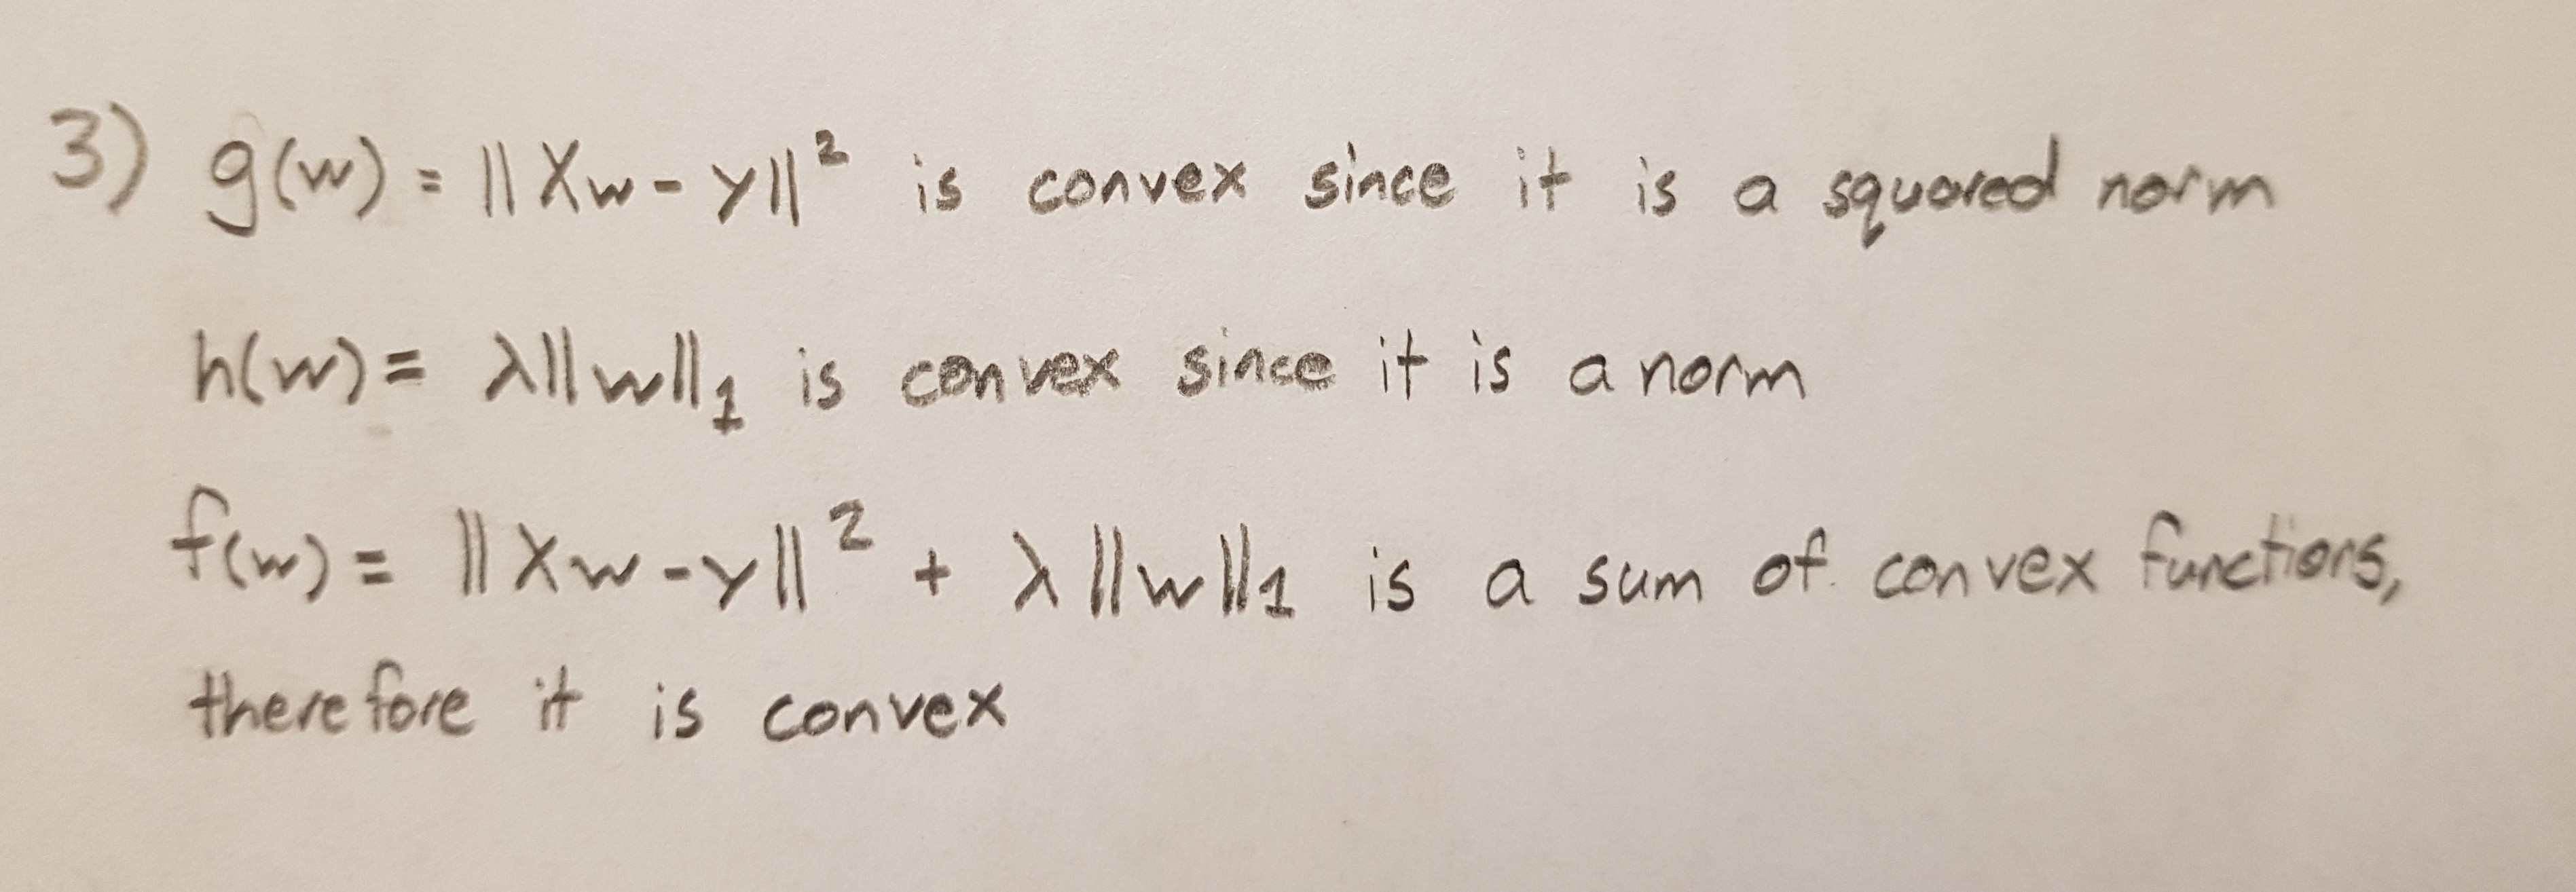 3) g(w) = ||Xw - y||² is convex since it is a squared norm
h(w) = λ||w||₁ is convex since it is a norm
f(w) = ||Xw - y||² + λ||w||₁ is a sum of convex functions,
therefore it is convex